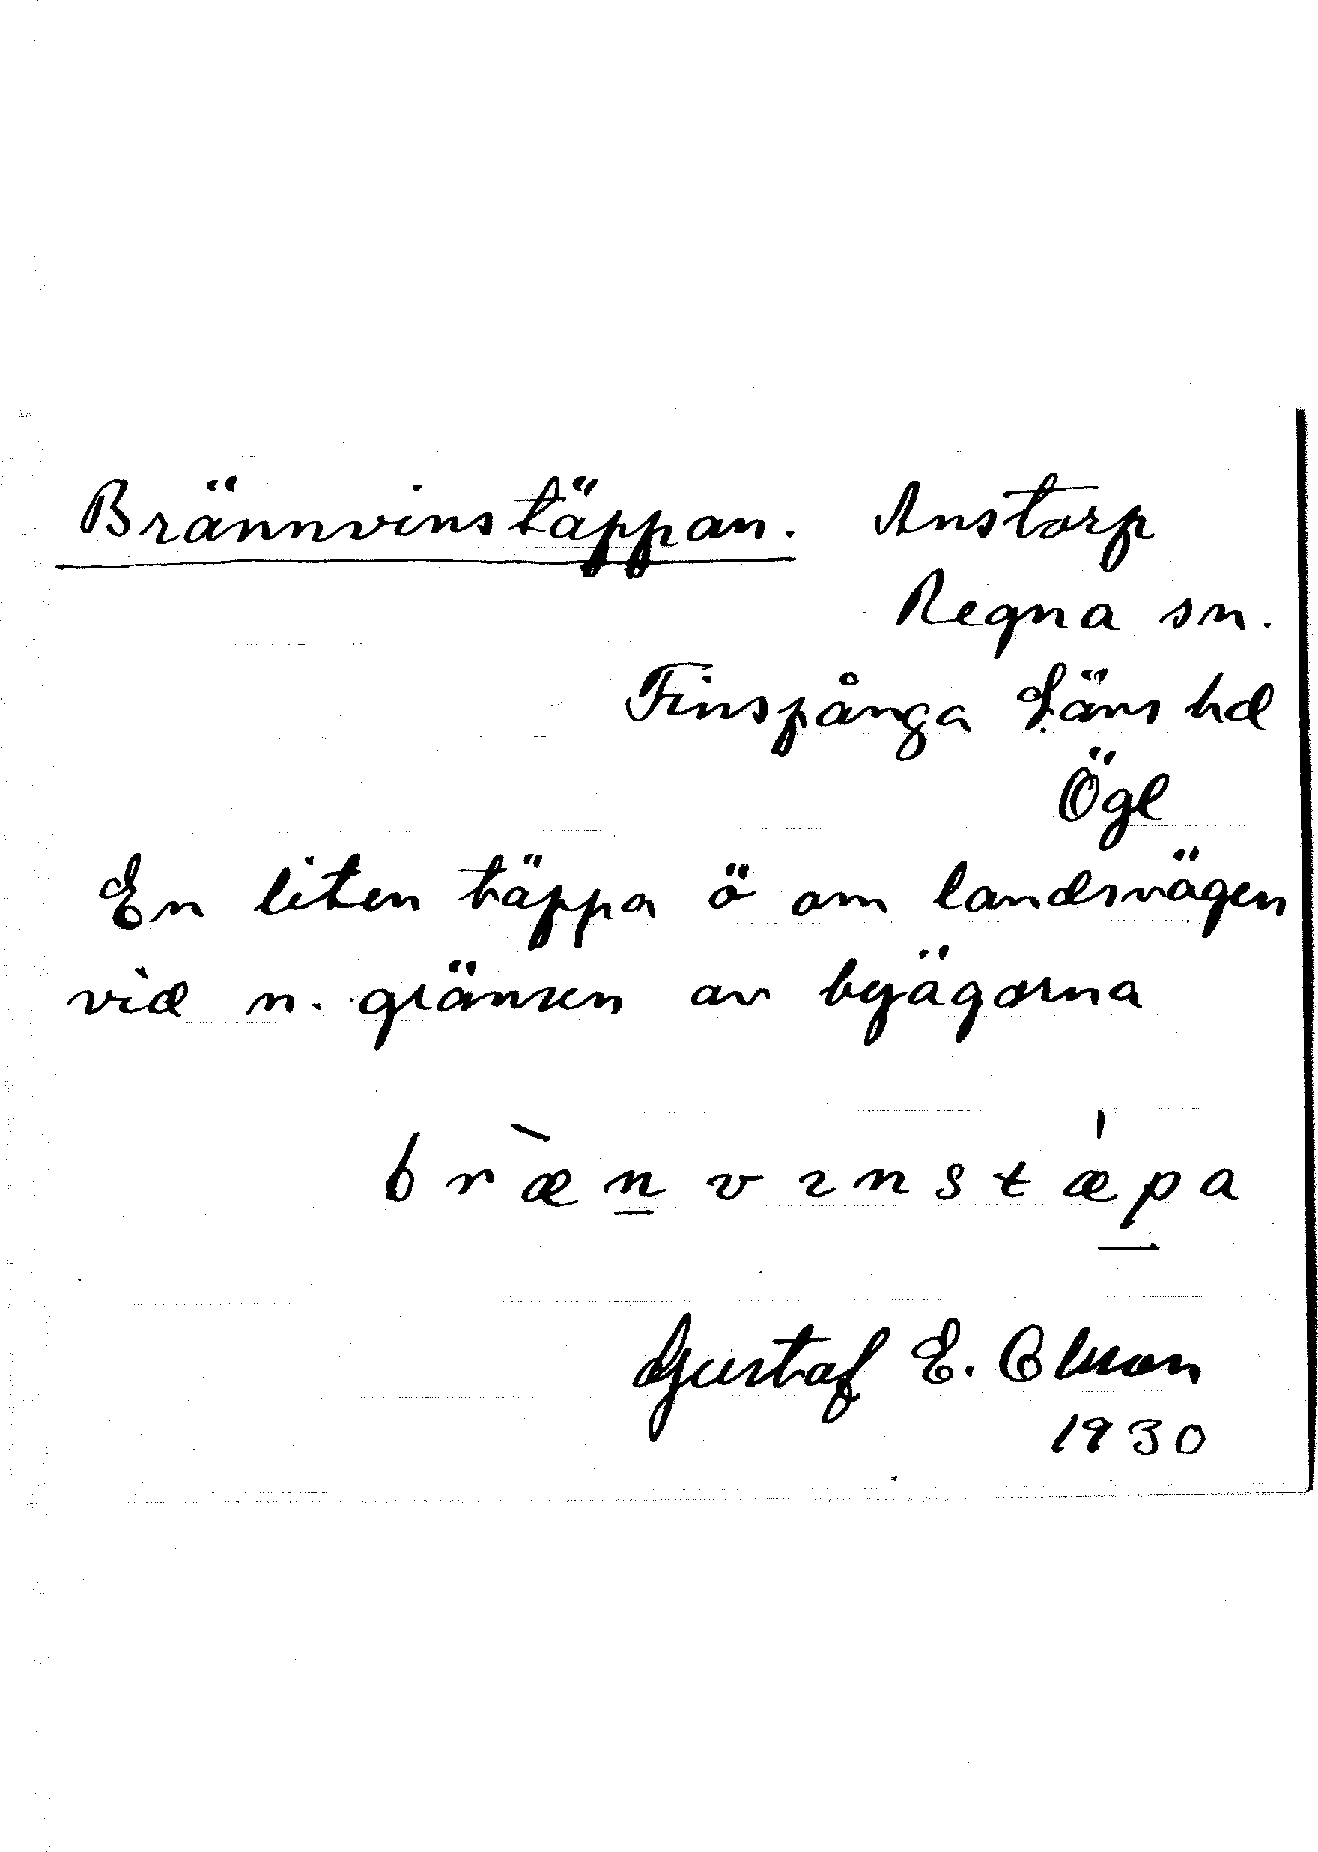 Brännvinstäppan. Anstorp
Regna sn.
Finspånga Läns hd
Ögl
En liten täppa ö om landsvägen
vid n. gränsen av byägorna
bræ̀nvınstæ̍pa
Gustaf E. Olsson
1930